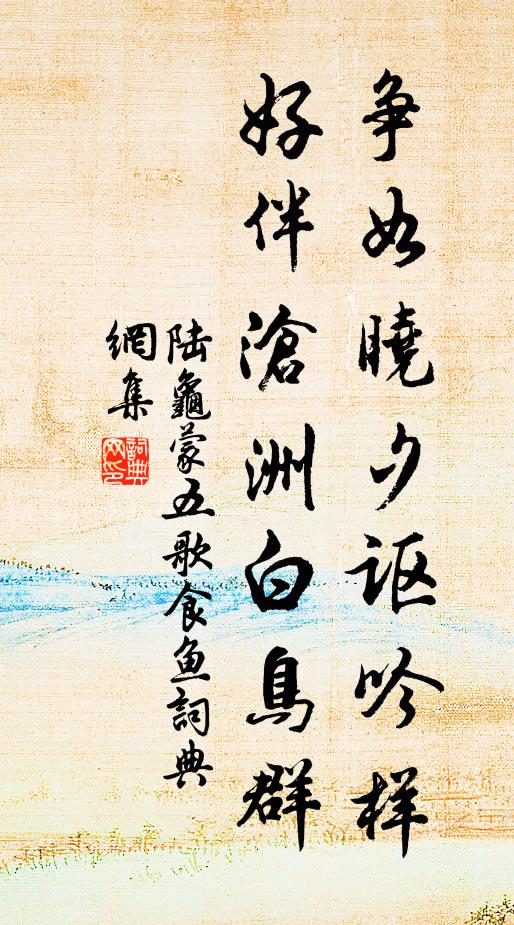 争如曉夕讴吟样
好伴滄洲白鳥群
陆龜蒙五歌食鱼詞典
網集
詞典网印